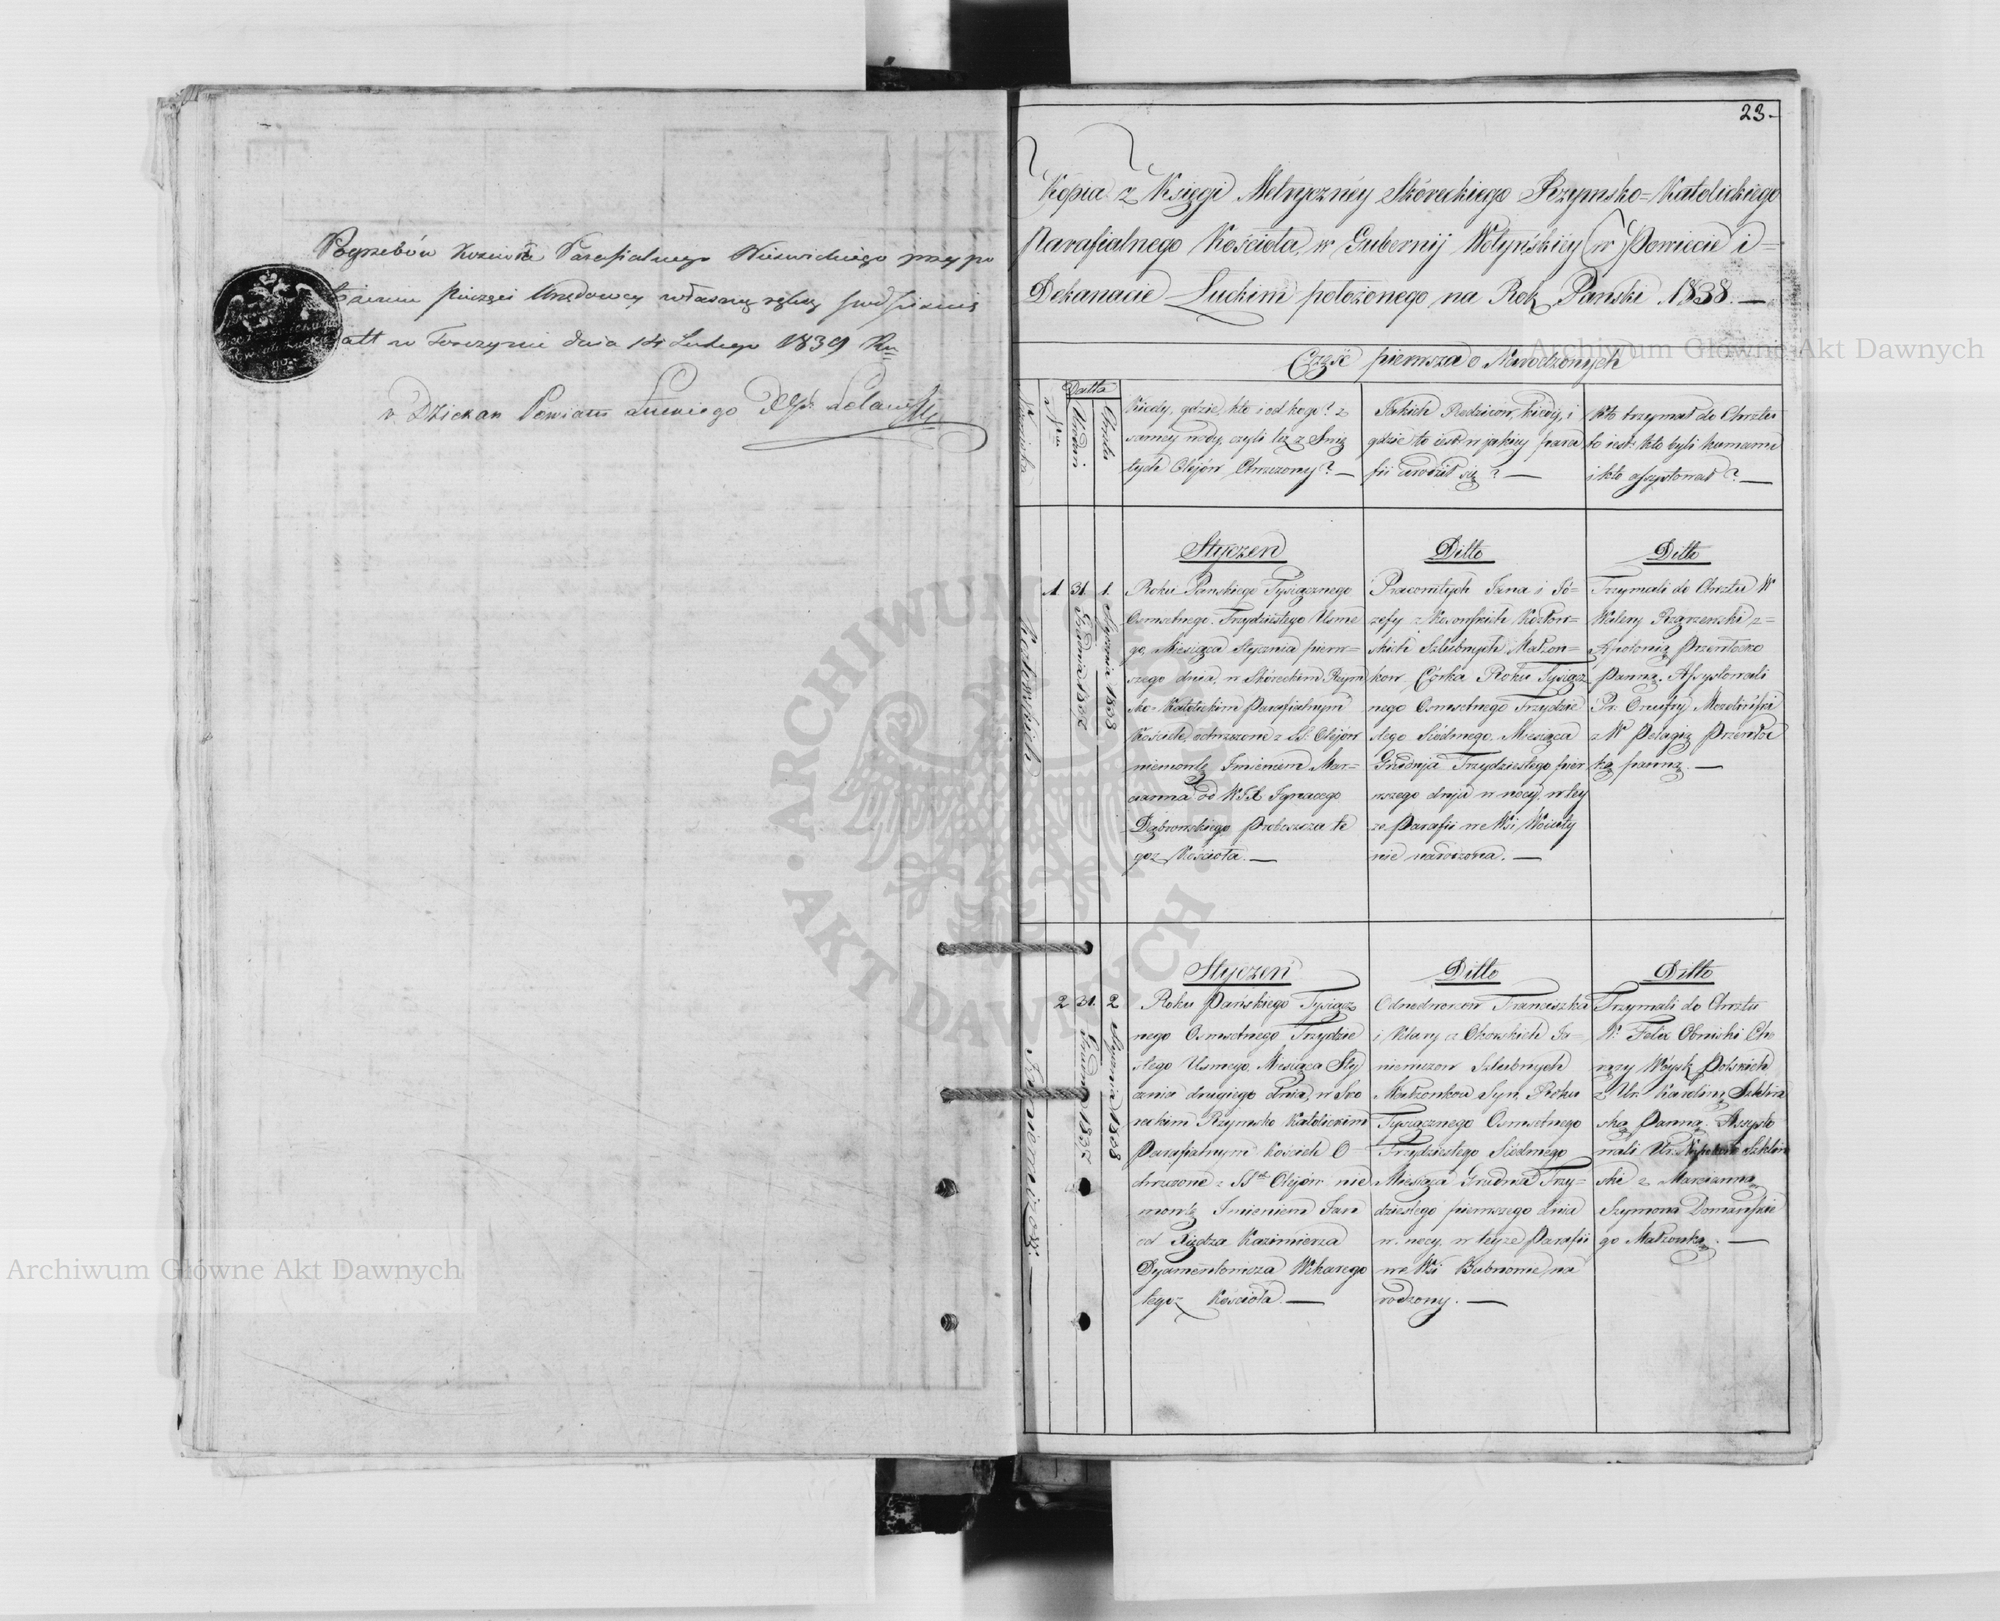 Pogrzebów Kościoła Parafialnego Kiświckiego przy po
Pieczęci Urzędowey własną ręką podpisuię
Datt w Torczynie dnia 14 Lutego 1839 Ru
v. Dziekan Powiatu Łuckiego
23.
Kopia z Księgi Metryczney Skóreckiego Rzymsko-Katolickiego
Parafialnego Kościoła, w Gubernij Wołyńskiéy w Powiecie i
Dekanacie Łuckim położonego na Rok Pański 1838. —
Część pierwsza o Narodzonych
Nazwiska
Nru
Datta
Urodzin
Chrztu
Kiedy, gdzie, kto i od kogo? z
samey wody, czyli też z Świę
tych Olejów Chrzczony? —
Jakich Rodziców, kiedy, i
gdzie to iest w jakiey para
fii urodził się? —
Kto trzymał do Chrztu
to iest: kto byli kumami
i kto assystował? —
Styczeń
Ditto
Ditto
Kozłowskich
1
31 Grudnia 1837
1. Stycznia 1838
Roku Pańskiego Tysiącznego
Osmsetnego Trzydziestego Usme
go, Miesiąca Stycznia pierw-
szego dnia, w Skóreckim Rzym
sko-Katolickim Parafialnym
Kościele, ochrzczona z SS. Olejów
niemowlę Imieniem Mar-
cianna od WJX Ignacego
Dąbrowskiego Proboszcza te
goz Kościoła. —
Pracowitych Jana i Jó-
zefy z Kosowskich Kozłow-
skich Szlubnych Małżon-
kow Córka Roku Tysiącz
nego Osmsetnego Trzydzie
stego Siódmego, Miesiąca
Grudnja Trzydziestego pier
wszego dnia w nocy, w tey
ze Parafii we Wsi
nie narodzona. —
Trzymali do Chrztu W
Walery Rzarzenski z
Apolonią Przewłocko
Panną. Assystowali
Pr. Onufry
z W Pelagią Przewłoc
ką panną. —
Styczeń
Ditto
Ditto
2
31. Grudnia 1837
2 Stycznia 1838
Roku Pańskiego Tysiącz
nego Osmsetnego Trzydzie
stego Usmego, Miesiąca Sty
cznia drugiego dnia, w Skó
reckim Rzymsko Katolickim
Parafialnym Kościele O-
chrzczone z SStch Olejów nie
mowlę Imieniem Jan
od Xiędza Kazimierza
Dyamentowicza Wikarego
tegoz Kościoła. —
Odnodworców Franciszka
i Klary z Ja-
niemczow Szlubnych
Małżonkow Syn, Roku
Tysiącznego Osmsetnego
Trzydziestego Siódmego
Miesiąca Grudnia Trzy-
dziestego pierwszego dnia
w nocy, w teyze Parafii
we Wsi Bubnowie, na
rodzony. —
Trzymali do Chrztu
Felix Obniski Cho
rąży Woysk Polskich
z Ur. Karoliną Szkliń
ską Panną. Assysto
wali Ur. Szkliń
ski z Marcianną
Szymona Domańskie
go Małżonką. —
Archiwum Główne Akt Dawnych
Archiwum Główne Akt Dawnych
ARCHIWUM GŁÓWNE AKT DAWNYCH